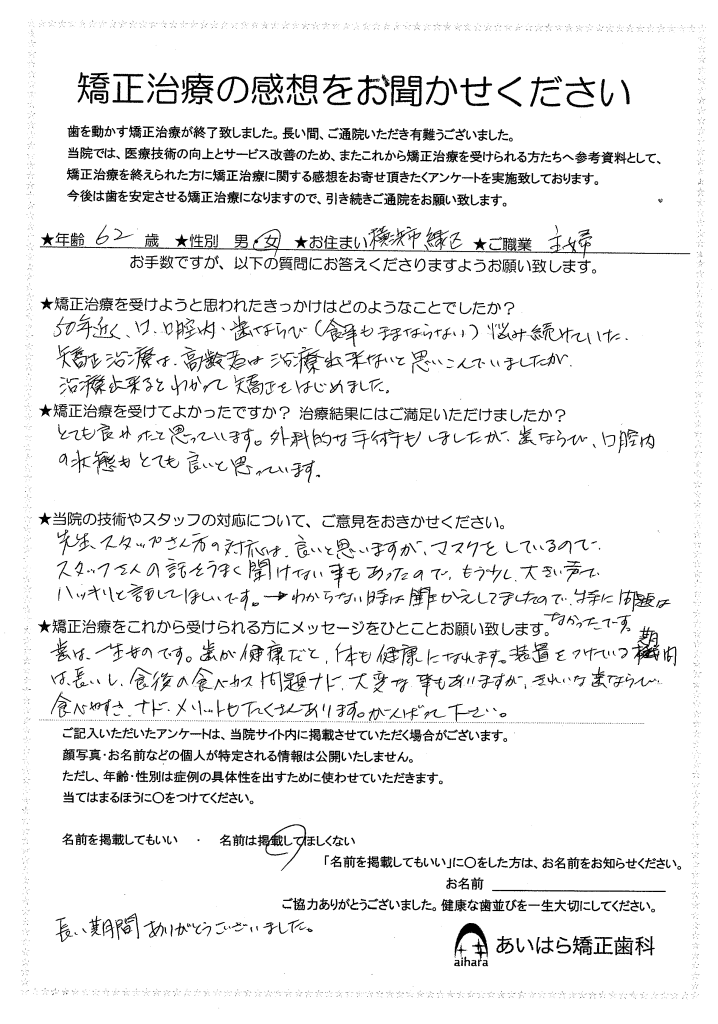 矯正治療の感想をお聞かせください
歯を動かす矯正治療が終了致しました。長い間、ご通院いただき有難うございました。
当院では、医療技術の向上とサービス改善のため、またこれから矯正治療を受けられる方たちへ参考資料として、
矯正治療を終えられた方に矯正治療に関する感想をお寄せ頂きたくアンケートを実施致しております。
今後は歯を安定させる矯正治療になりますので、引き続きご通院をお願い致します。
★年齢 62 歳 ★性別 男・女 ★お住まい 横浜市緑区 ★ご職業 主婦
お手数ですが、以下の質問にお答えくださりますようお願い致します。
★矯正治療を受けようと思われたきっかけはどのようなことでしたか？
50年近く、口、口腔内・歯ならび（食事もままならない）悩み続けていた。
矯正治療は、高齢者は治療出来ないと思いこんでいましたが
治療出来るとわかって矯正をはじめました。
★矯正治療を受けてよかったですか？ 治療結果にはご満足いただけましたか？
とても良かったと思っています。外科的な手術もしましたが、歯ならび、口腔内
の状態もとても良いと思っています。
★当院の技術やスタッフの対応について、ご意見をおきかせください。
先生、スタッフさん方の対応は、良いと思いますが、マスクをしているので、
スタッフさんの話をうまく聞けない事もあったので、もう少し、大きい声で
ハッキリと話してほしいです。→わからない時は聞きかえしてましたので、特に問題は
なかったです。
★矯正治療をこれから受けられる方にメッセージをひとことお願い致します。
歯は、一生ものです。歯が健康だと、体も健康になれます。装置をつけている期間
は長いし、食後の食べカス問題ナド、大変な事もありますが、きれいな歯ならび
食べやすさ、ナド、メリットもたくさんあります。がんばって下さい。
ご記入いただいたアンケートは、当院サイト内に掲載させていただく場合がございます。
顔写真・お名前などの個人が特定される情報は公開いたしません。
ただし、年齢・性別は症例の具体性を出すために使わせていただきます。
当てはまるほうに〇をつけてください。
名前を掲載してもいい ・ 名前は掲載してほしくない
「名前を掲載してもいい」に〇をした方は、お名前をお知らせください。
お名前
ご協力ありがとうございました。健康な歯並びを一生大切にしてください。
長い期間ありがとうございました。
aihara あいはら矯正歯科